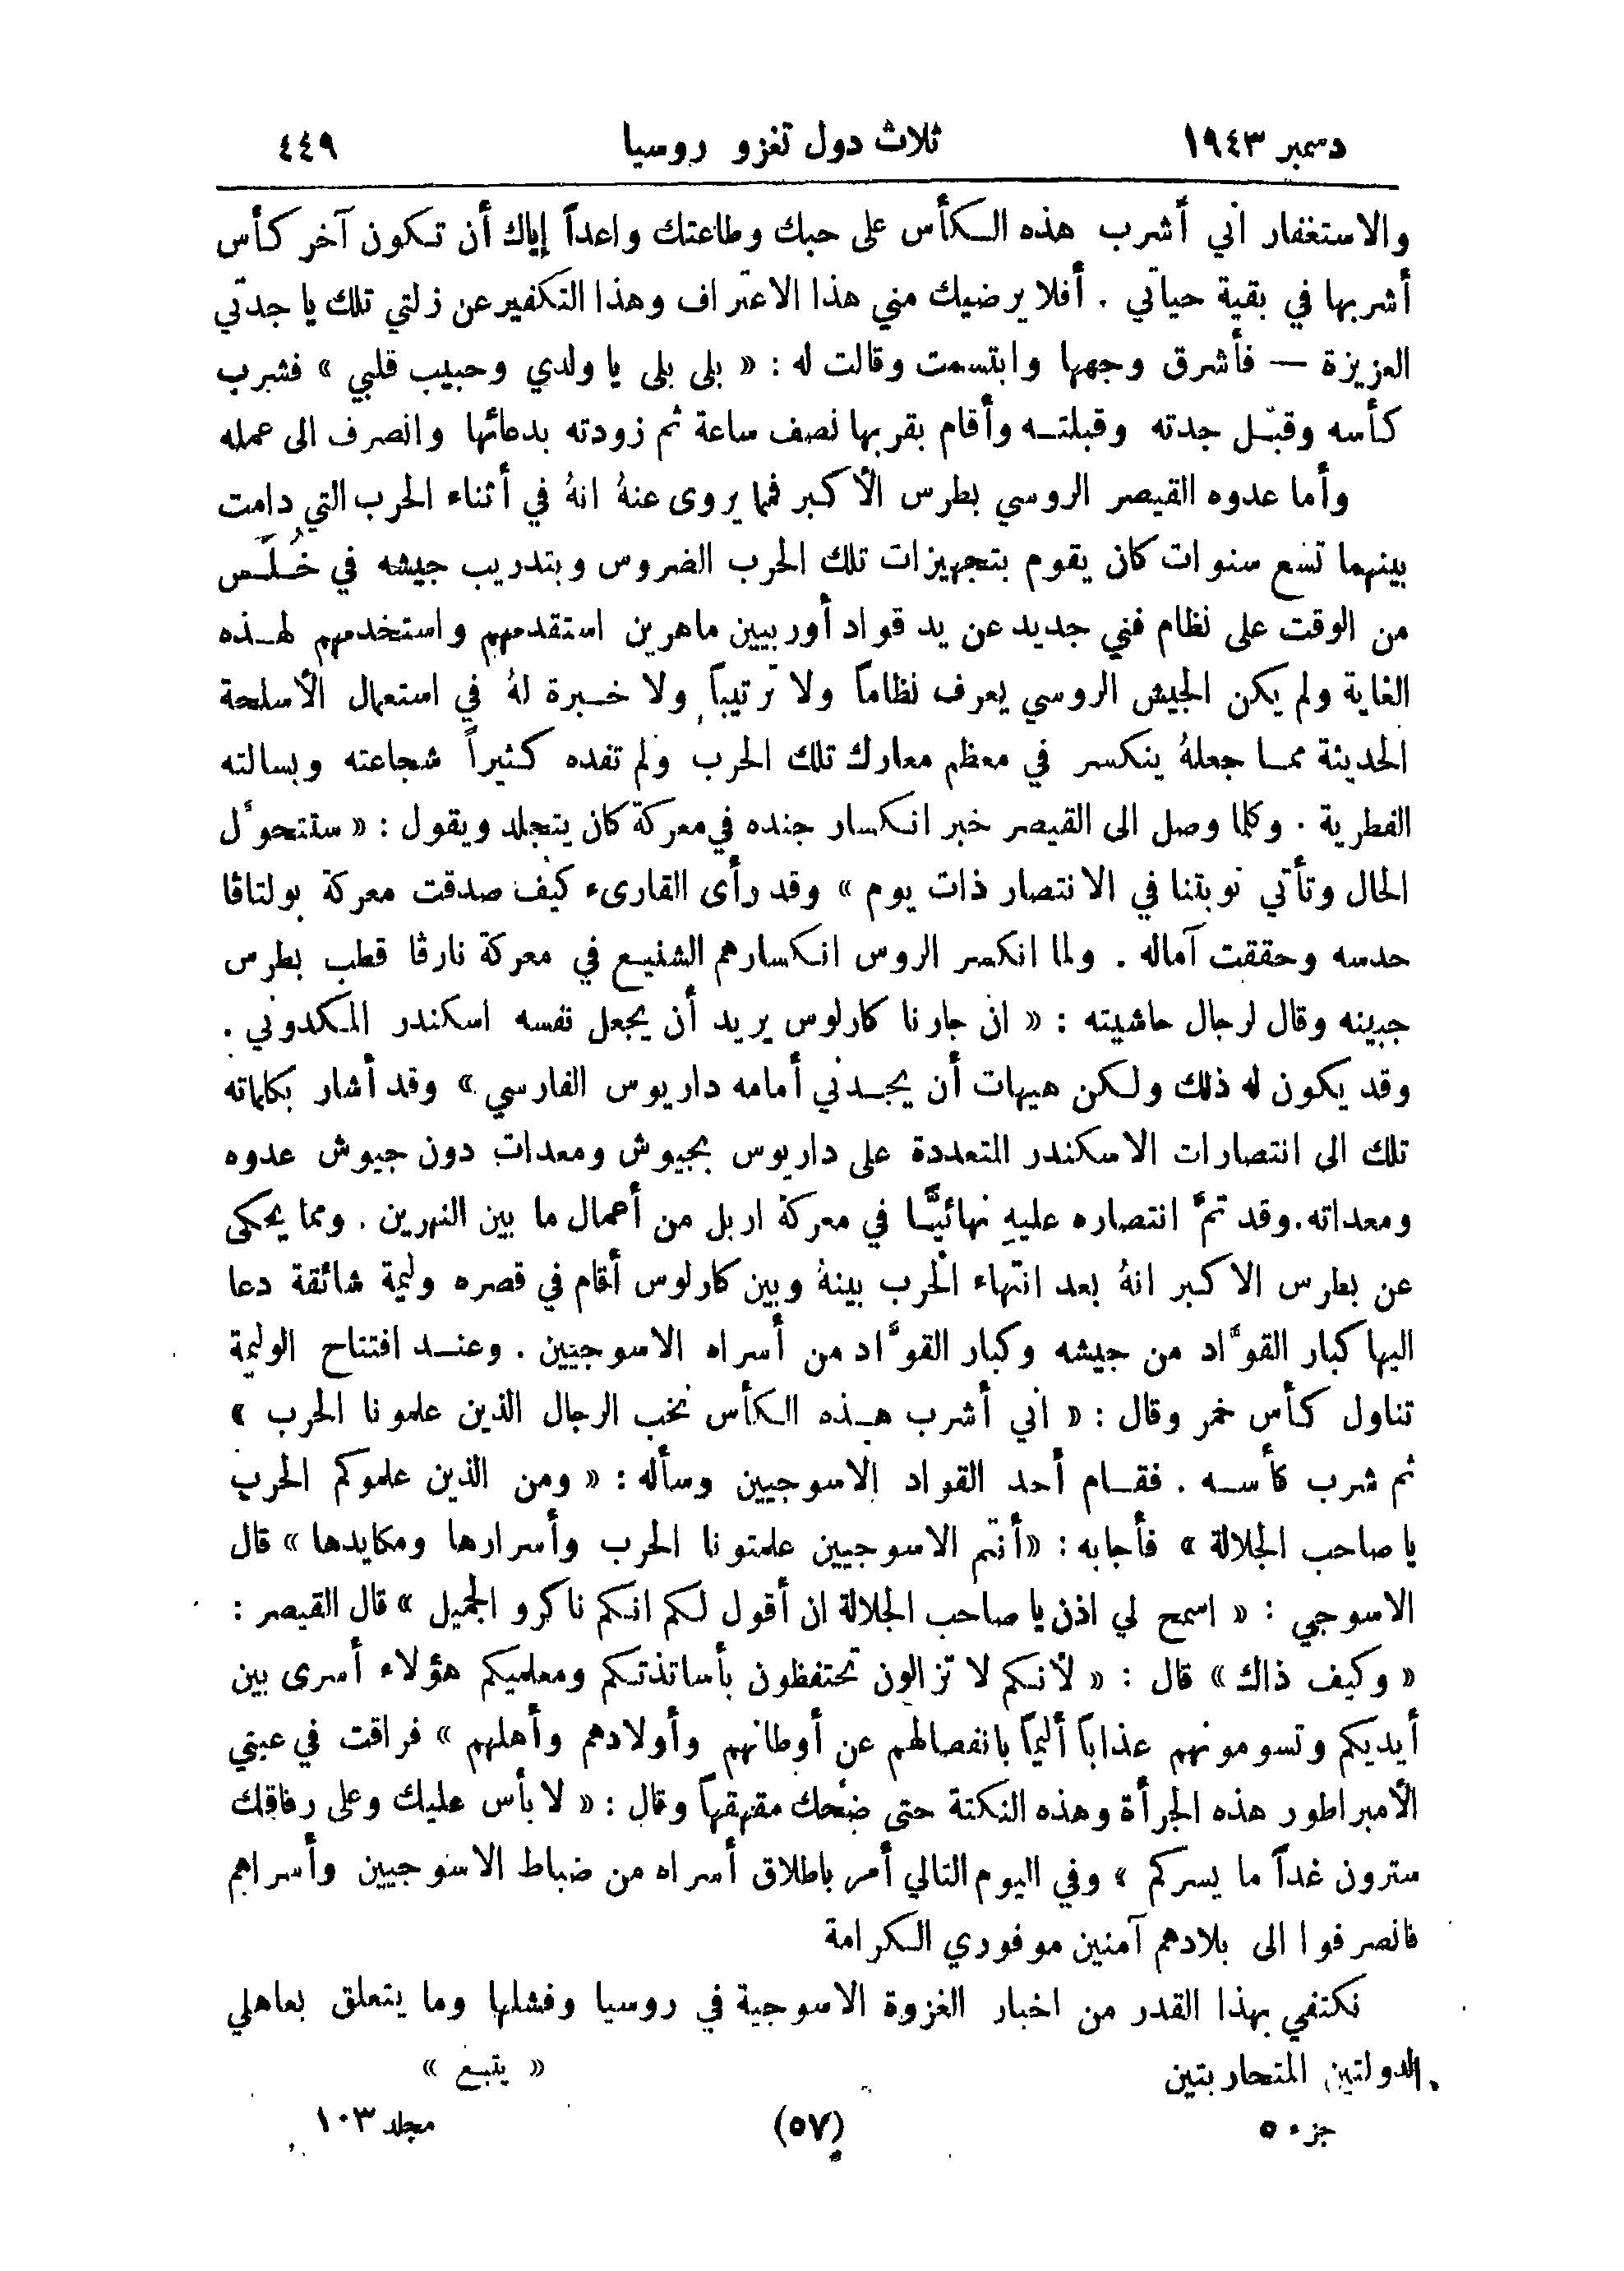 دسمبر ١٩٤٣ ثلاث دول تغزو روسيا ٤٤٩
والاستغفار اني أشرب هذه الكأس على حبك وطاعتك واعداً إياك أن تكون آخر كأس
أشربها في بقية حياتي . أفلا يرضيك مني هذا الاعتراف وهذا التكفير عن زلتي تلك يا جدتي
العزيزة — فأشرق وجهها وابتسمت وقالت له : « بلى بلى يا ولدي وحبيب قلبي » فشرب
كأسه وقبّل جدته وقبلته وأقام بقربها نصف ساعة ثم زودته بدعائها وانصرف الى عمله
وأما عدوه القيصر الروسي بطرس الأكبر فما يروى عنهُ انهُ في أثناء الحرب التي دامت
بينهما تسع سنوات كان يقوم بتجهيزات تلك الحرب الضروس وبتدريب جيشه في خُلَس
من الوقت على نظام فني جديد عن يد قواد أوربيين ماهرين استقدمهم واستخدمهم لهذه
الغاية ولم يكن الجيش الروسي يعرف نظاماً ولا ترتيباً ولا خبرة لهُ في استعمال الأسلحة
الحديثة مما جعلهُ ينكسر في معظم معارك تلك الحرب ولم تفده كثيراً شجاعته وبسالته
الفطرية . وكلما وصل الى القيصر خبر انكسار جنده في معركة كان يتجلد ويقول : « ستتحوَّل
الحال وتأتي نوبتنا في الانتصار ذات يوم » وقد رأى القارىء كيف صدقت معركة بولتاڤا
حدسه وحققت آماله . ولما انكسر الروس انكسارهم الشنيع في معركة نارڤا قطب بطرس
جبينه وقال لرجال حاشيته : « ان جارنا كارلوس يريد أن يجعل نفسه اسكندر المكدوني .
وقد يكون له ذلك ولكن هيهات أن يجدني أمامه داريوس الفارسي » وقد أشار بكلماته
تلك الى انتصارات الاسكندر المتعددة على داريوس بجيوش ومعدات دون جيوش عدوه
ومعداته . وقد تمَّ انتصاره عليهِ نهائيًّا في معركة اربل من أعمال ما بين النهرين . ومما يحكى
عن بطرس الاكبر انهُ بعد انتهاء الحرب بينهُ وبين كارلوس أقام في قصره وليمة شائقة دعا
اليها كبار القوَّاد من جيشه وكبار القوَّاد من أسراه الاسوجيين . وعند افتتاح الوليمة
تناول كأس خمر وقال : « اني أشرب هذه الكأس نخب الرجال الذين علمونا الحرب »
ثم شرب كأسه . فقام أحد القواد الاسوجيين وسأله : « ومن الذين علموكم الحرب
يا صاحب الجلالة » فأجابه : « أنتم الاسوجيين علمتونا الحرب وأسرارها ومكايدها » قال
الاسوجي : « اسمح لي اذن يا صاحب الجلالة ان أقول لكم انكم ناكرو الجميل » قال القيصر :
« وكيف ذاك » قال : « لأنكم لا تزالون تحتفظون بأساتذتكم ومعلميكم هؤلاء أسرى بين
أيديكم وتسومونهم عذاباً أليماً بانفصالهم عن أوطانهم وأولادهم وأهلهم » فراقت في عيني
الأمبراطور هذه الجرأة وهذه النكتة حتى ضحك مقهقهاً وقال : « لا بأس عليك وعلى رفاقك
سترون غداً ما يسركم » وفي اليوم التالي أمر باطلاق أسراه من ضباط الاسوجيين وأسراهم
فانصرفوا الى بلادهم آمنين موفوري الكرامة
نكتفي بهذا القدر من اخبار الغزوة الاسوجية في روسيا وفشلها وما يتعلق بعاهلي
الدولتين المتحاربتين « يتبع »
جزء ٥ (٥٧) مجلد ١٠٣